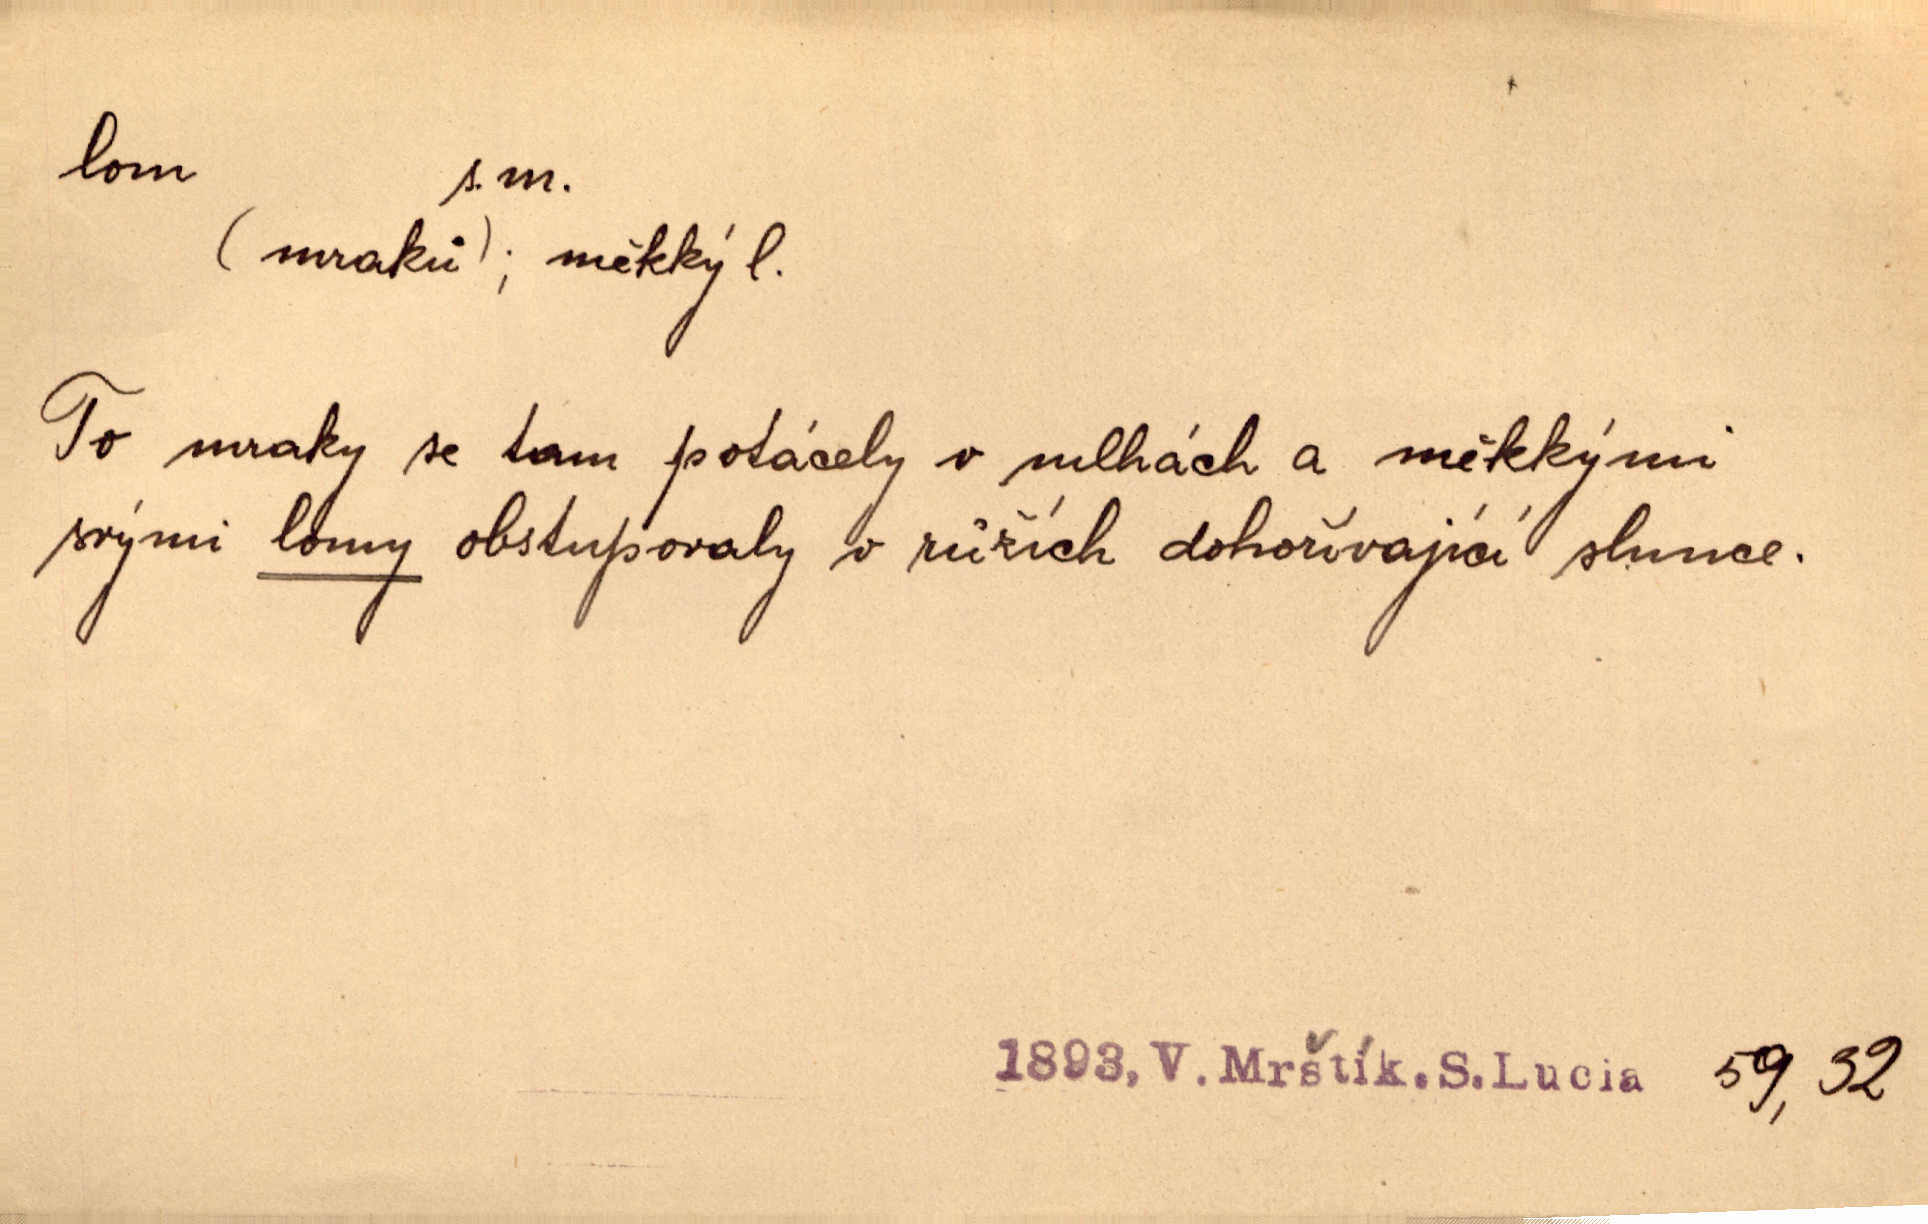 lom s. m.
(mraků); měkký l.
To mraky se tam potácely v mlhách a měkkými
svými lomy obstupovaly v růžích dohořívající slunce.
1893, V. Mrštík. S. Lucia 59, 32